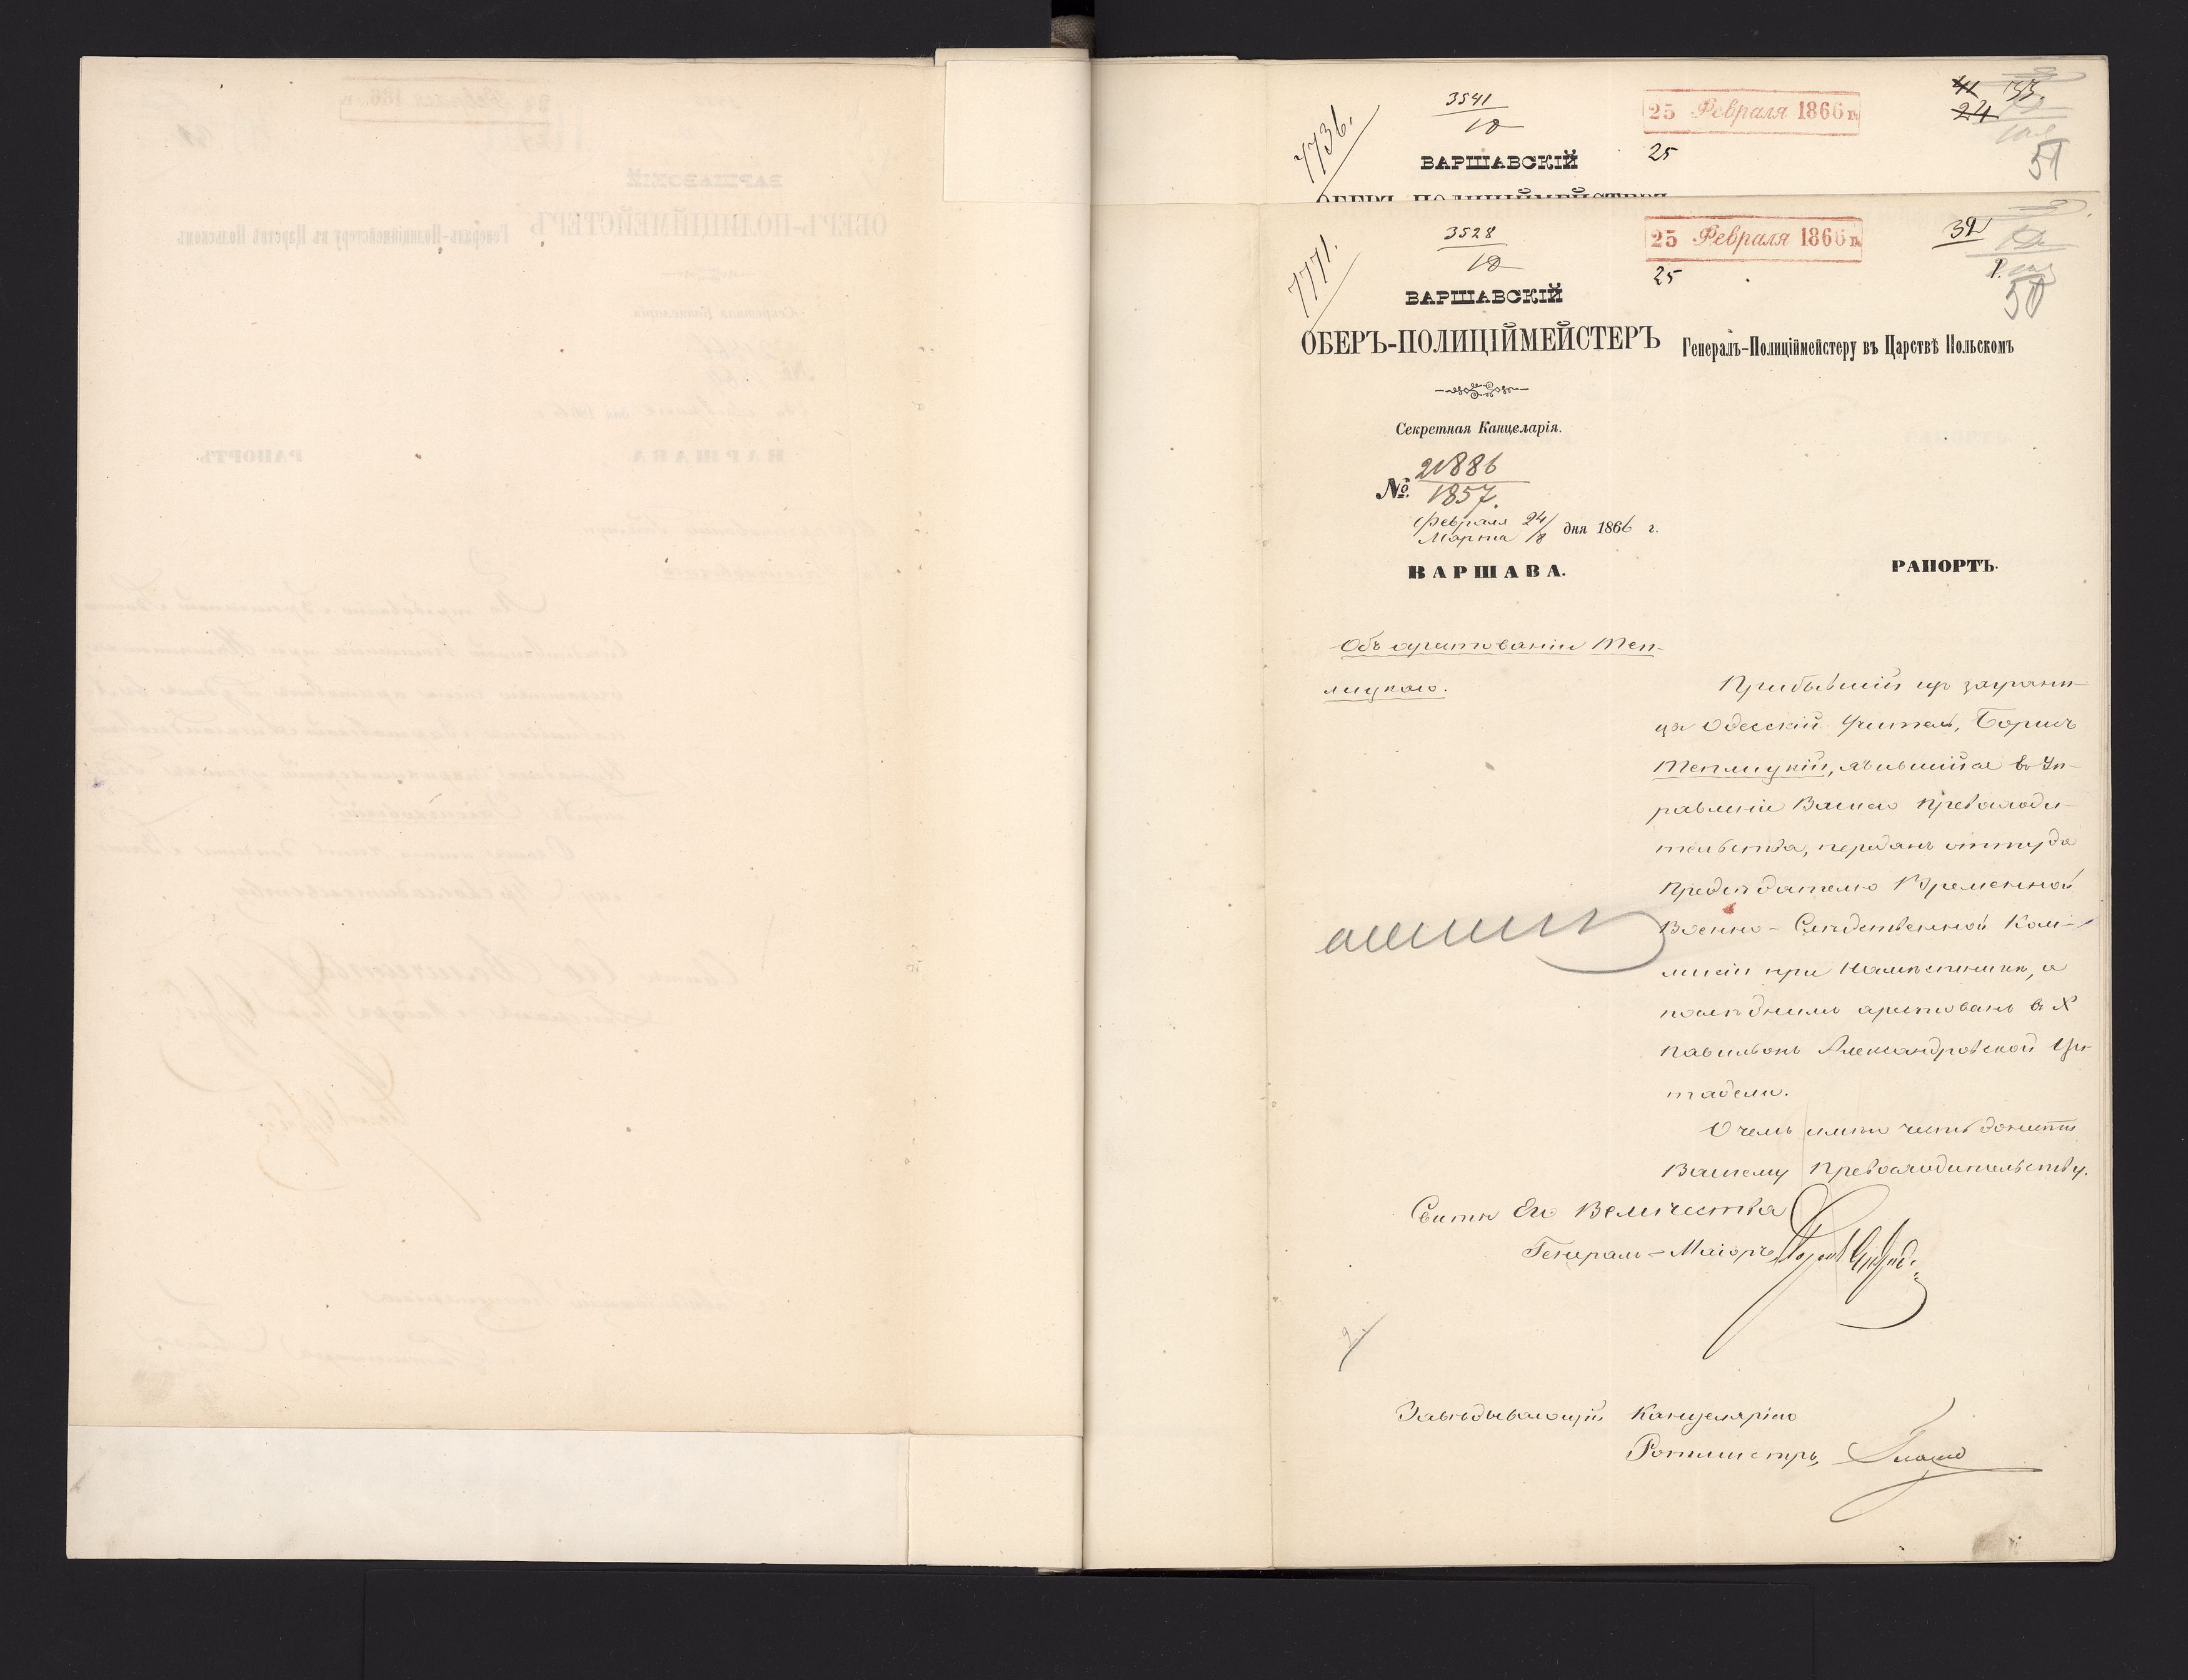 7736.
3541
10
25 Февраля 1866 г.
25
41 33.
24
51
ВАРШАВСКІЙ
ОБЕРЪ-ПОЛИЦІЙМЕЙСТЕРЪ
7771.
3528
10
25 Февраля 1866 г.
25
32
50
ВАРШАВСКІЙ
ОБЕРЪ-ПОЛИЦІЙМЕЙСТЕРЪ
Генералъ-Полиціймейстеру въ Царствѣ Польскомъ
Секретная Канцелярія.
№ 21886
1857.
Февраля 24/
Марта /8 дня 1866 г.
ВАРШАВА.
РАПОРТЪ.
Объ арестованіи Теп-
лицкаго.
Прибывшій изъ заграни-
цы Одесскій Учитель, Борисъ
Теплицкій, явившійся въ Уп-
равленіе Вашего Превосходи-
тельства, переданъ оттуда
Предсѣдателю Временной
Военно-Слѣдственной Ком-
мисіи при Намѣстникѣ, а
послѣднимъ арестованъ въ X
павильонъ Александровской Ци-
тадели.
О чемъ имѣю честь донести
Вашему Превосходительству.
Свиты Его Величества
Генералъ-Маіоръ
Завѣдывающій Канцеляріею
Ротмистръ